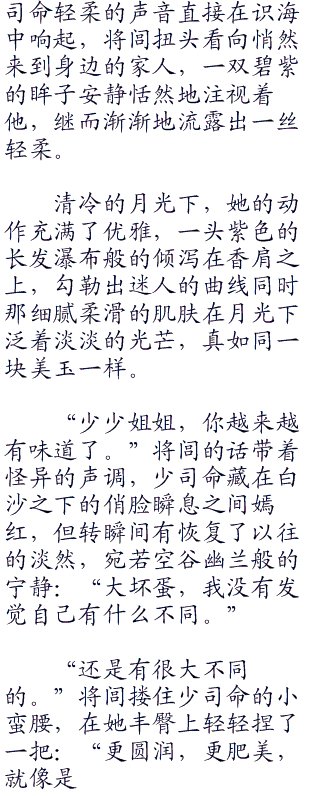 司命轻柔的声音直接在识海
中响起，将闾扭头看向悄然
来到身边的家人，一双碧紫
的眸子安静恬然地注视着
他，继而渐渐地流露出一丝
轻柔。
清冷的月光下，她的动
作充满了优雅，一头紫色的
长发瀑布般的倾泻在香肩之
上，勾勒出迷人的曲线同时
那细腻柔滑的肌肤在月光下
泛着淡淡的光芒，真如同一
块美玉一样。
“少少姐姐，你越来越
有味道了。”将闾的话带着
怪异的声调，少司命藏在白
沙之下的俏脸瞬息之间嫣
红，但转瞬间有恢复了以往
的淡然，宛若空谷幽兰般的
宁静：“大坏蛋，我没有发
觉自己有什么不同。”
“还是有很大不同
的。”将闾搂住少司命的小
蛮腰，在她丰臀上轻轻捏了
一把：“更圆润，更肥美，
就像是